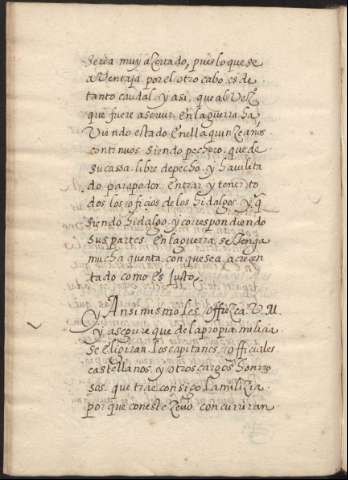 sería muy açertado, pues lo que se
aventaja por el otro cabo, es de
tanto caudal, y así, que al Vez.
que fuere a servir en la guerra ha
viendo estado en ella quinze años
continuos siendo pechero, quede
su cassa libre de pecho, y havilita
do para poder entrar y tener to
dos los oficios de los hidalgos y q
siendo hidalgo, y correspondiendo
sus partes en la guerra, se tenga
mucha quenta con que sea acreçen
tado como es Justo /
y Ansimismo les offrezca V. M.
y asegure que de la propia miliçia
se eligiran los capitanes, officiales
castellanos, y otros cargos honrro
sos que trae consigo la miliçia
porque con este zevo concurriran